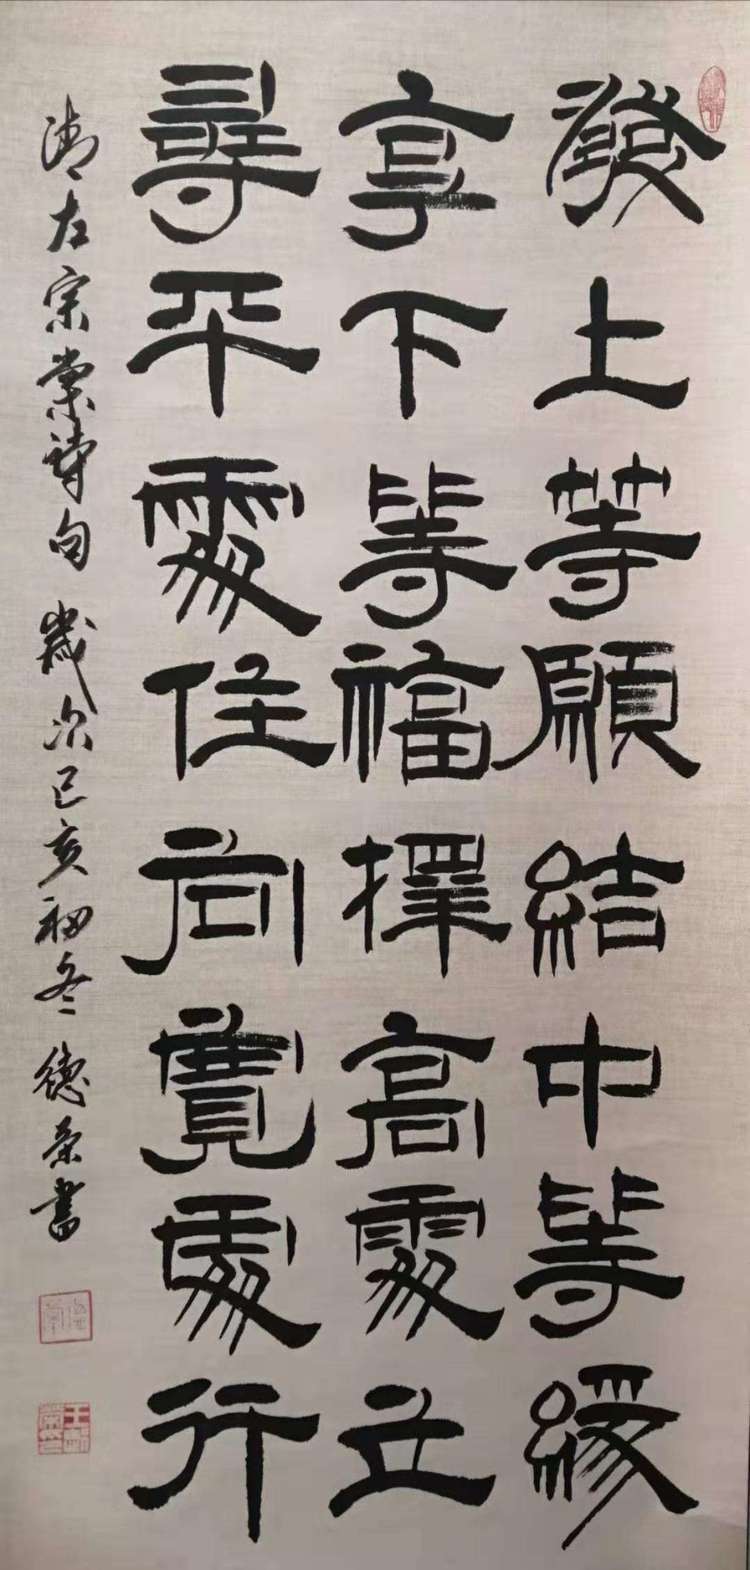 發上等願結中等緣
享下等福擇高處立
尋平處住向寬處行
清左宗棠詩句 歲次己亥初冬 德荣書